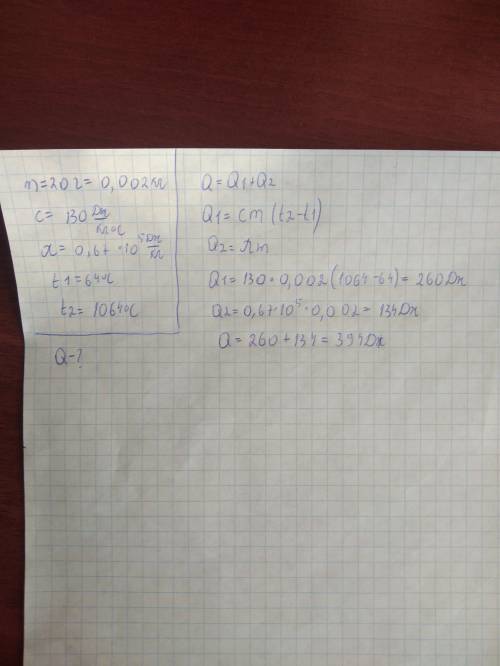 m=20г=0,002кг
c= 130 Дж/кг°C
λ= 0,67·10⁵ Дж/кг
t1=64°C
t2=1064°C
Q-?
Q=Q1+Q2
Q1=cm(t2-t1)
Q2=λm
Q1=130·0,002(1064-64)=260Дж
Q2=0,67·10⁵·0,002=134Дж
Q=260+134=394Дж